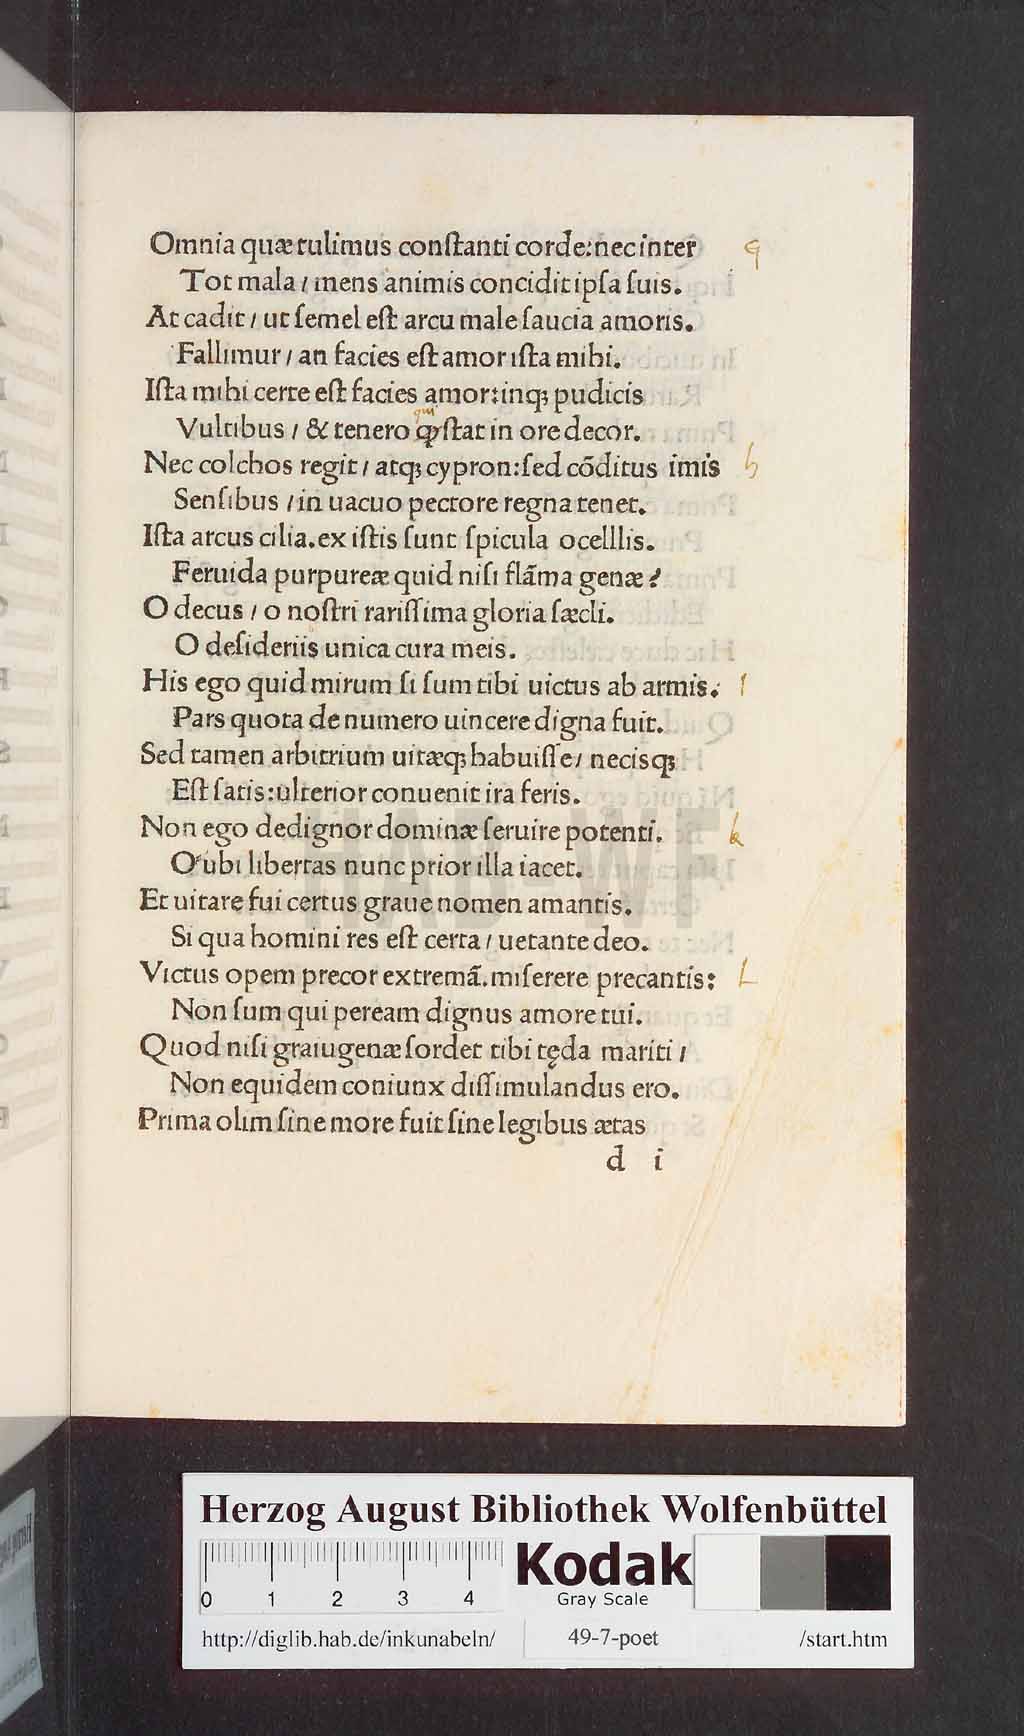 Omnia quæ tulimus conſtanti corde: nec inter
Tot mala / mens animis concidit ipſa ſuis.
At cadit / ut ſemel eſt arcu male ſaucia amoris.
Fallimur / an facies eſt amor iſta mihi.
Iſta mihi certe eſt facies amor: inqꝫ pudicis
qui
Vultibus / & tenero ꝙ ſtat in ore decor.
Nec colchos regit / atqꝫ cypron: ſed cõditus imis
Senſibus / in uacuo pectore regna tenet.
Iſta arcus cilia. ex iſtis ſunt ſpicula ocelllis.
Feruida purpureæ quid niſi flãma genæ?
O decus / o noſtri rariſſima gloria ſæcli.
O deſideriis unica cura meis.
His ego quid mirum ſi ſum tibi uictus ab armis.
Pars quota de numero uincere digna fuit.
Sed tamen arbitrium uitæqꝫ habuiſſe / necisqꝫ
Eſt ſatis: ulterior conuenit ira feris.
Non ego dedignor dominæ ſeruire potenti.
O ubi libertas nunc prior illa iacet.
Et uitare fui certus graue nomen amantis.
Si qua homini res eſt certa / uetante deo.
Victus opem precor extremã. miſerere precantis:
Non ſum qui peream dignus amore tui.
Quod niſi graiugenæ ſordet tibi tęda mariti /
Non equidem coniunx diſſimulandus ero.
Prima olim ſine more fuit ſine legibus ætas
d i
HAB-WF
Herzog August Bibliothek Wolfenbüttel
0 1 2 3 4
Kodak
Gray Scale
http://diglib.hab.de/inkunabeln/ 49-7-poet /start.htm